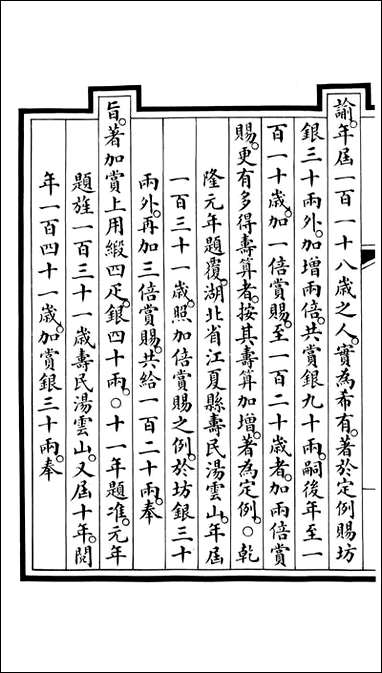 諭。年屆一百一十八歲之人。實為布有。著於定例賜坊
銀三十兩外。加增兩倍。共賞銀九十兩。嗣後年至一
百一十歲。加一倍賞賜。至一百二十歲者。加兩倍賞
賜。更有多得壽算者。按其壽算加增。著為定例。○乾
隆元年題覆。湖北省江夏縣壽民湯雲山。年屆
一百三十一歲。照加倍賞賜之例。於坊銀三十
兩外。再加三倍賞賜。共給一百二十兩。奉
旨。著加賞上用緞四疋。銀四十兩。○十一年題准。元年
題旌一百三十一歲壽民湯雲山。又屆十年。閱
年一百四十一歲。加賞銀三十兩。奉